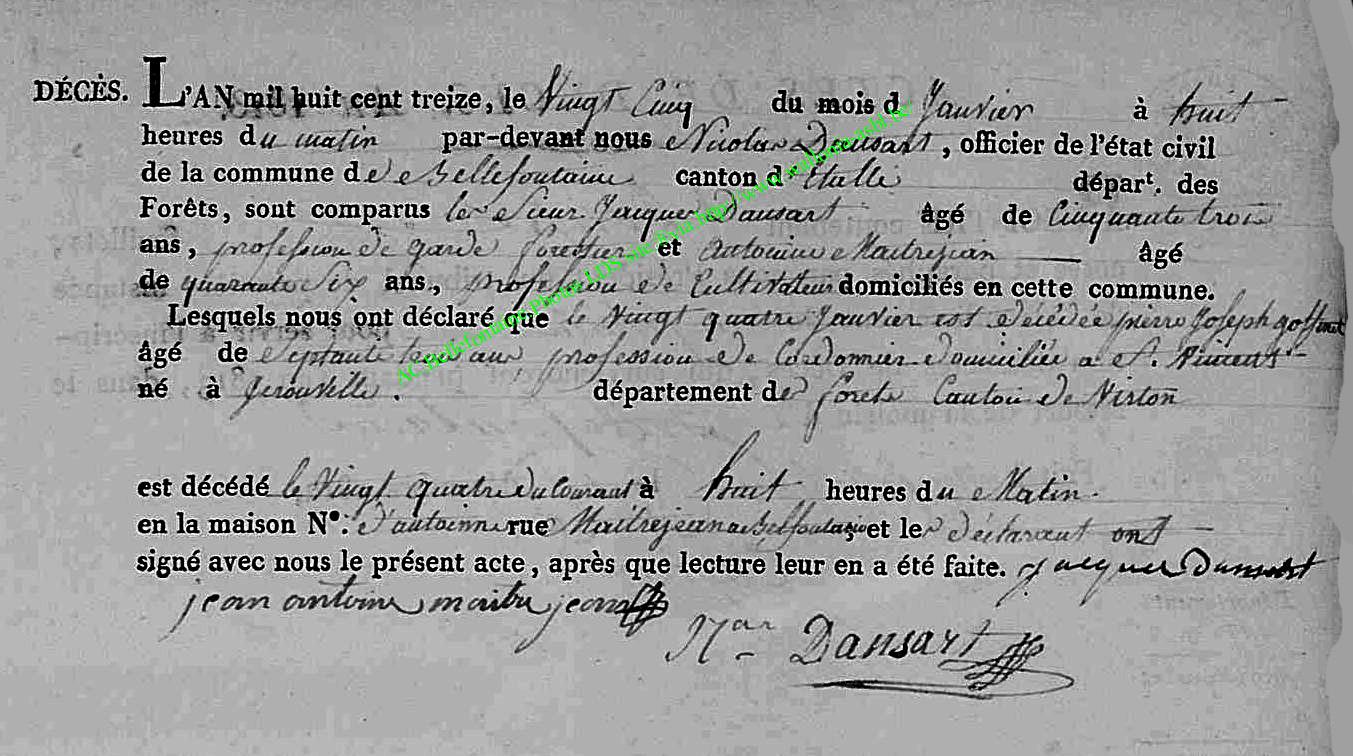 DÉCÈS. L'AN mil huit cent treize, le Vingt Cinq du mois d Janvier à huit
heures du matin par-devant nous Nicolas Dansart, officier de l'état civil
de la commune de Bellefontaine canton d'Etalle départ. des
Forêts, sont comparus les Sieur Jacques Dansart âgé de Cinquante trois
ans, profession de garde forestier et antoine Maitrejean âgé
de quarante Six ans, profession de Cultivateur domiciliés en cette commune.
Lesquels nous ont déclaré que le Vingt quatre Janvier est décédée pierre Joseph
âgé de Septante ans profession de Cordonnier domiciliée a St. Vincent
né à Gerouville. département des forets Canton de Virton
est décédé le Vingt quatre du Courant à huit heures du Matin.
en la maison N°: d'antoinne rue Maitrejean a et les déclarant ont
signé avec nous le présent acte, après que lecture leur en a été faite. Jacques Dansart
jean antoine maitre jean
Nas Dansart
AC Bellefontaine Photos LDS site Evia http://www.wallonia-asbl.be